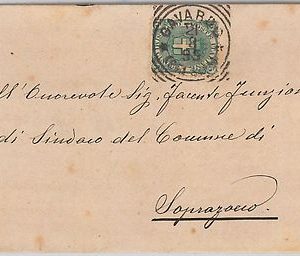 GAVARDO
ll'Onorevole Sig. Facente Funzion
di Sindaco del Comune di
Soprazocco.